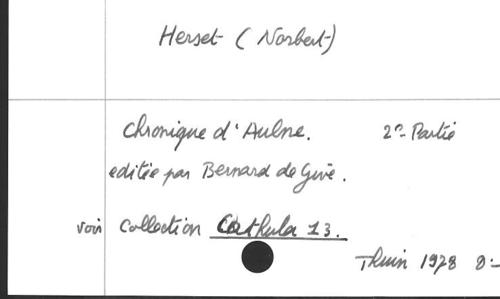 Herset (Norbert)
Chronique d'Aulne. 2e Partie
editée par Bernard de Give.
voir Collection Cathula 13.
Thuin 1978 8:-